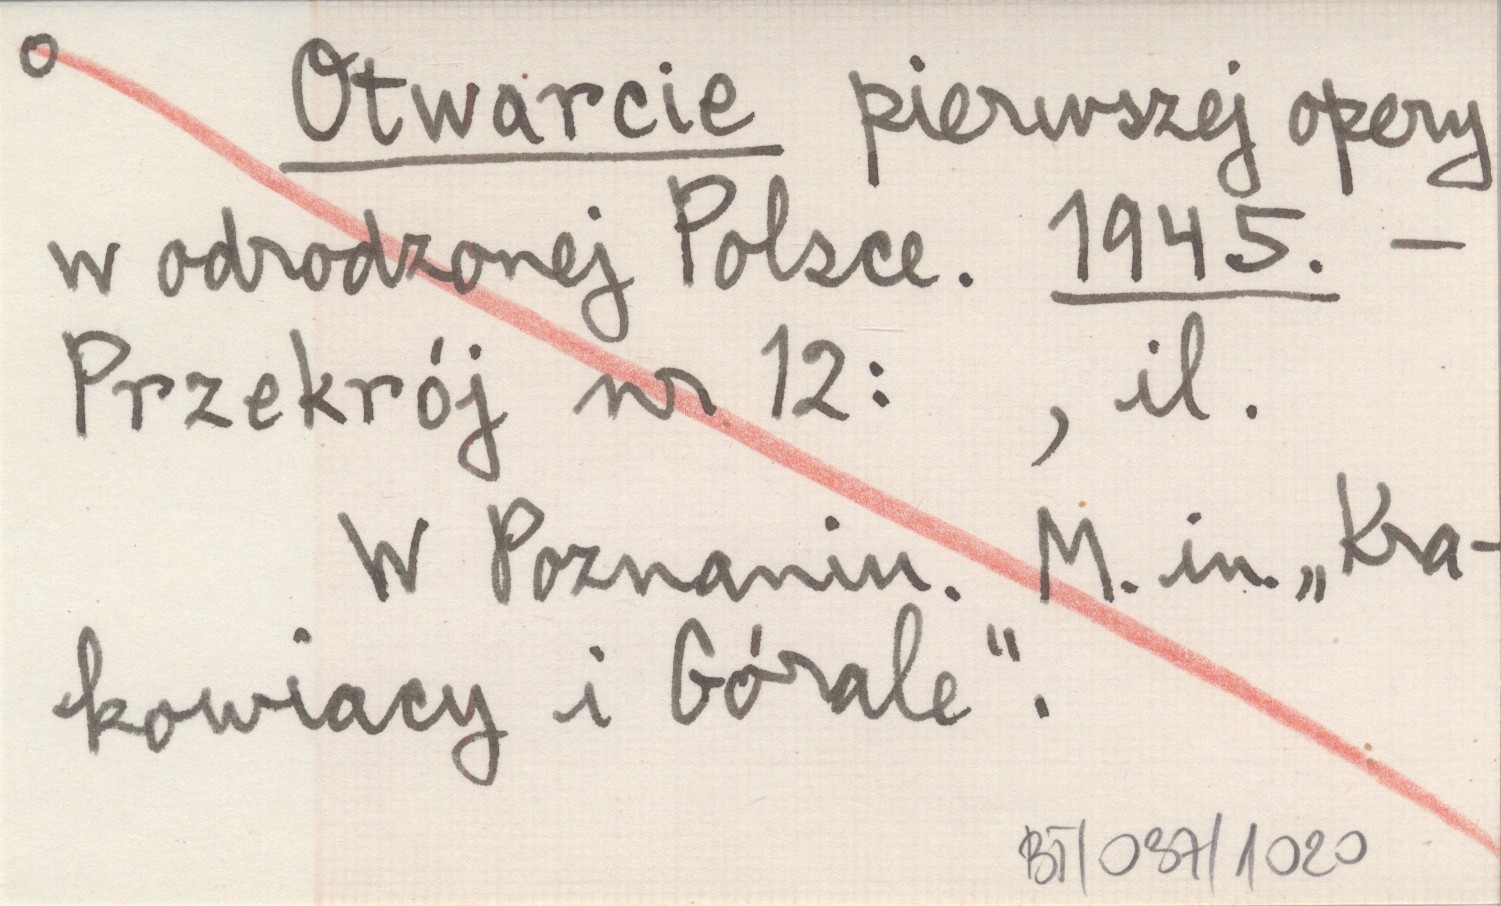 o Otwarcie pierwszej opery
w odrodzonej Polsce. 1945. —
Przekrój nr 12: , il.
W Poznaniu. M. in. „Kra-
kowiacy i Górale".
BT/037/1020